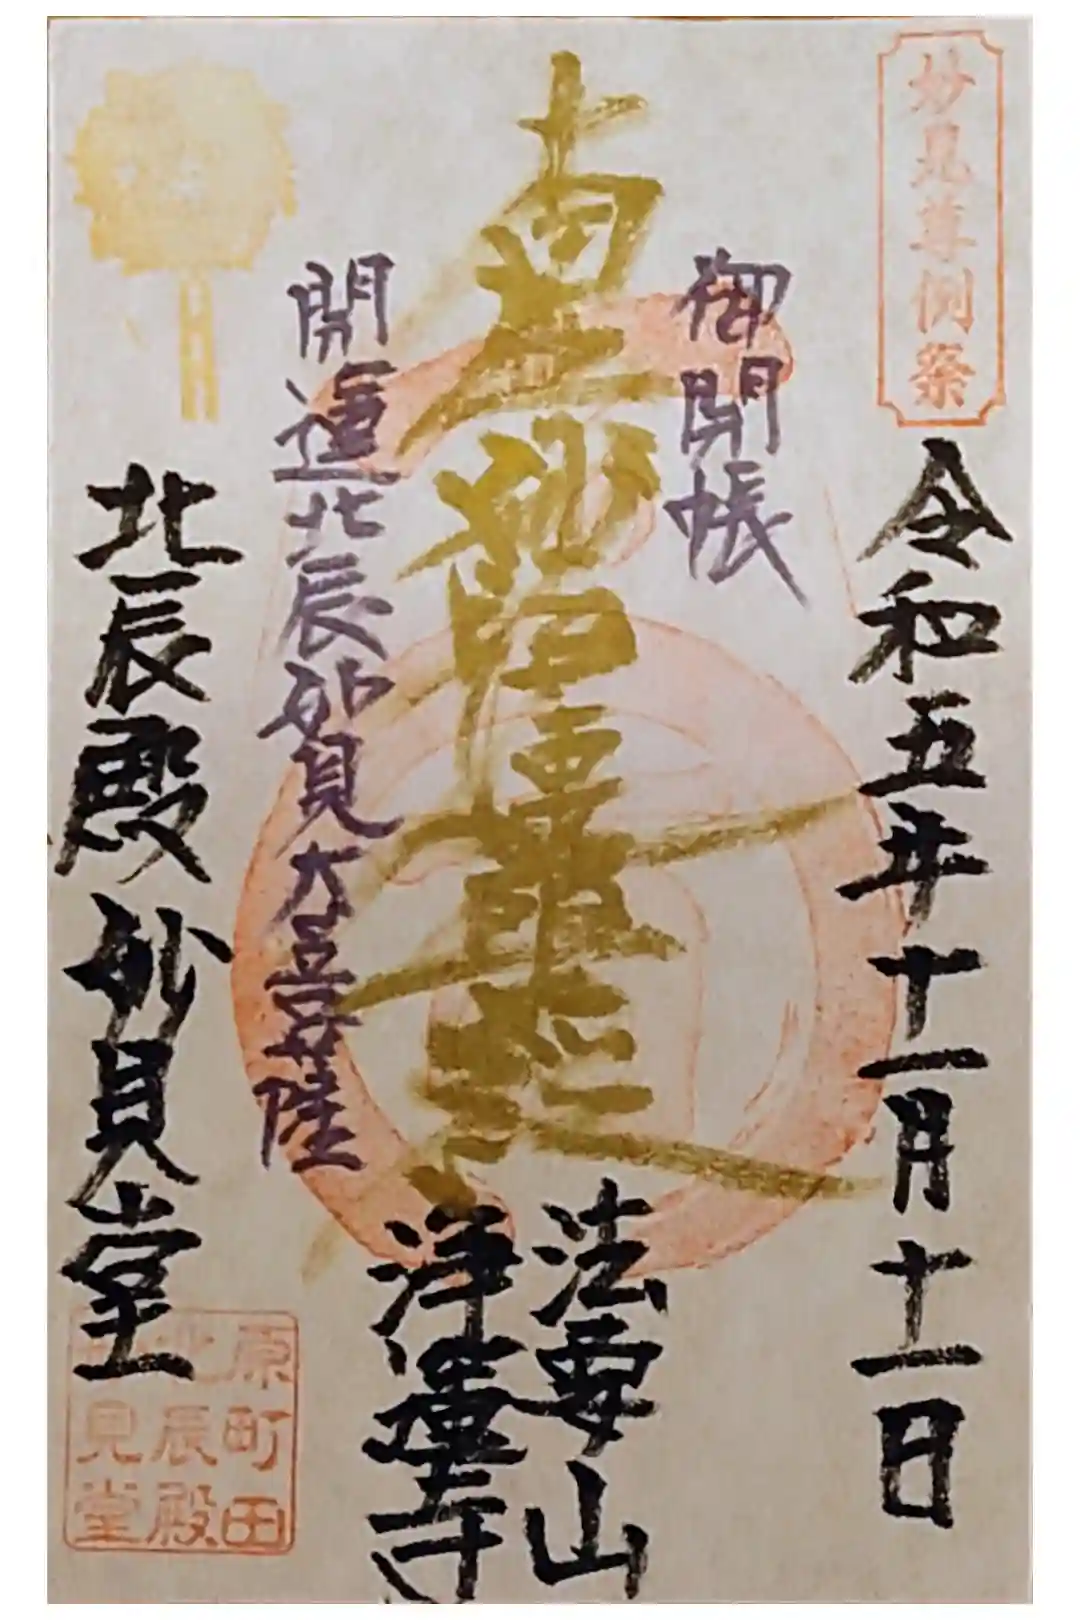 妙見尊例祭
令和五年十一月十一日
御開帳
南無妙法蓮華経
法要山
浄蓮寺
開運北辰妙見大菩薩
北辰殿妙見堂
原町田
北辰殿
見堂